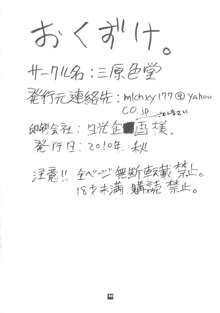 おくずけ。
サークル名：三原色堂
発行元連絡先：mlchxy177@yahoo
co.jp
印刷会社：日光企画様。
発行日：2010年 秋
注意!! 全ページ無断転載禁止。
18才未満 購読禁止。